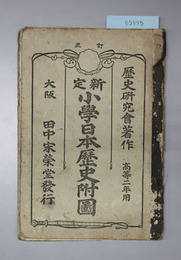 65995
訂正
歴史研究會著作
高等二年用
新定
小學日本歴史附圖
大阪
田中宋榮堂發行